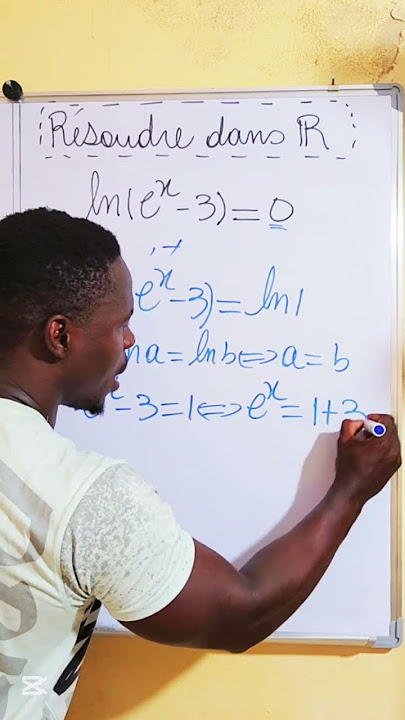 Résoudre dans ℝ
ln(eˣ - 3) = 0
eˣ - 3) = ln1
na = lnb ⇔ a = b
- 3 = 1 ⇔ eˣ = 1 + 3